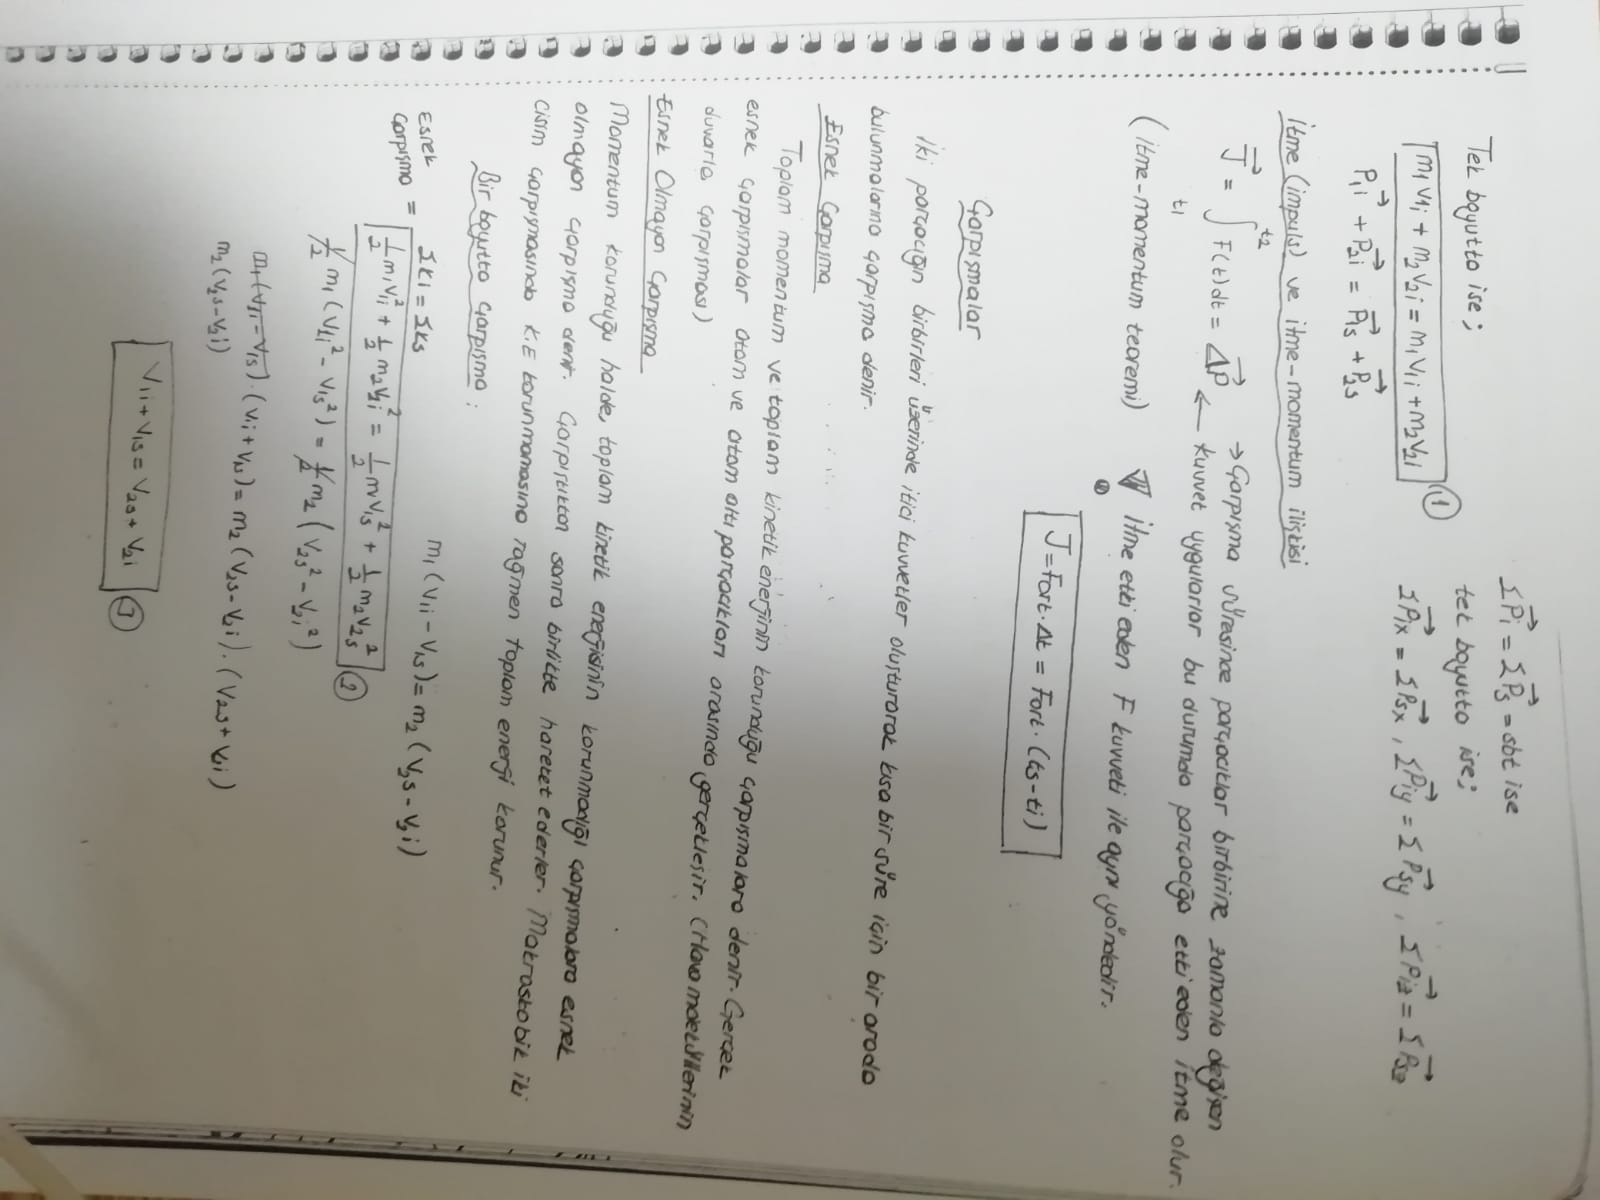 Tek boyutta ise;
m₁V1i + m₂V2i = m₁V1i + m₂V2i ①
P⃗1i + P⃗2i = P⃗1s + P⃗2s
ΣP⃗i = ΣP⃗s = sbt ise
tek boyutta ise;
ΣP⃗ix = ΣP⃗sx, ΣP⃗iy = ΣP⃗sy, ΣP⃗iz = ΣP⃗sz
İtme (impuls) ve itme-momentum ilişkisi
J⃗ = ∫ₜ₁ᵗ² F(t)dt = ΔP⃗ → Çarpışma süresince parçacıklar birbirine zamanla değişen
← kuvvet uygularlar bu durumda parçacığa etki eden itme olur.
(itme-momentum teoremi)
! İtme etki eden F kuvveti ile aynı yöndedir.
J = Fort.Δt = Fort.(ts-ti)
Çarpışmalar
İki parçacığın birbirleri üzerinde itici kuvvetler oluşturarak kısa bir süre için bir arada
bulunmalarına çarpışma denir.
Esnek Çarpışma
Toplam momentum ve toplam kinetik enerjinin korunduğu çarpışmalara denir. Gerçek
esnek çarpışmalar atom ve atom altı parçacıkları arasında gerçekleşir. (Hava moleküllerinin
duvarla çarpışması)
Esnek Olmayan Çarpışma
Momentum korunduğu halde, toplam kinetik enerjisinin korunmadığı çarpışmalara esnek
olmayan çarpışma denir. Çarpıştıktan sonra birlikte hareket ederler. Makroskobik iki
cisim çarpışmasında K.E korunmamasına rağmen toplam enerji korunur.
Bir boyutta çarpışma:
Esnek Çarpışma = ΣKi = ΣKs
m₁(V1i - V1s) = m₂(V2s - V2i)
1/2 m₁V1i² + 1/2 m₂V2i² = 1/2 mV1s² + 1/2 m₂V2s² ②
1/2 m₁(V1i² - V1s²) = 1/2 m₂(V2s² - V2i²)
m₁(V1i - V1s).(V1i + V1s) = m₂(V2s - V2i).(V2s + V2i)
m₂(V2s - V2i)
V1i + V1s = V2s + V2i ③